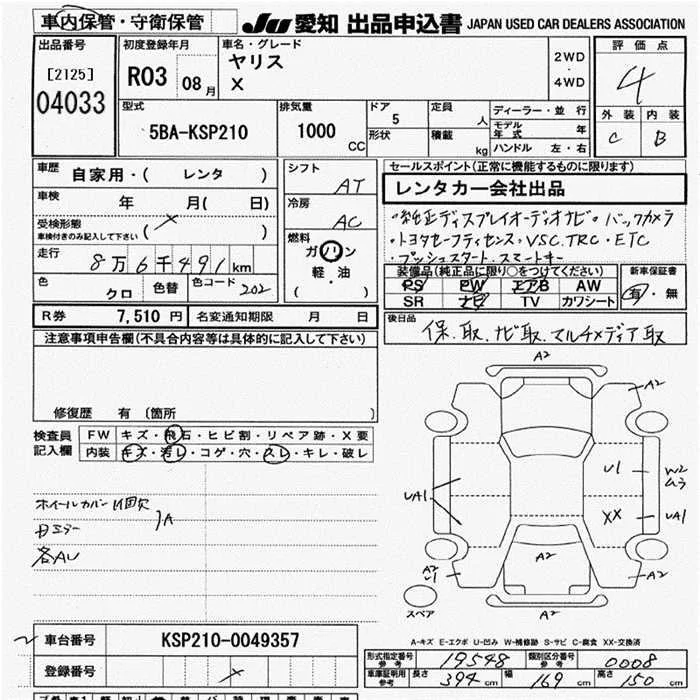 車内保管・守衛保管
JU 愛知 出品申込書 JAPAN USED CAR DEALERS ASSOCIATION
出品番号
[2125]
04033
初度登録年月
R03 08 月
車名・グレード
ヤリス
X
2WD
・
4WD
評価点
4
外装 内装
C B
型式
5BA-KSP210
排気量
1000
CC
ドア
5
形状
定員
人
積載
kg
ディーラー・並行
モデル年式 年
ハンドル 左・右
車歴
自家用・( レンタ )
車検
年 月( 日)
受検形態
車検付きのみ記入して下さい ( )
走行
8万6千491km
色
クロ
色替
色コード 202
シフト
AT
冷房
AC
燃料
ガソリン
軽・油
( )
セールスポイント(正常に機能するものに限ります)
レンタカー会社出品
・純正ディスプレイオーディオナビ・バックカメラ
・トヨタセーフティセンス・VSC.TRC・ETC
・プッシュスタート・スマートキー
装備品(純正品に限り○をつけてください)
PS PW エアB AW
SR ナビ TV カワシート
新車保証書
有・無
R券 7,510 円
名変通知期限 月 日
後日品
保.取.ナビ取.マルチメディア取
注意事項申告欄(不具合内容等は具体的に記入して下さい)
修復歴 有 〔箇所 〕
検査員記入欄
FW キズ・飛石・ヒビ割・リペア跡・X要
内装 キズ・汚レ・コゲ・穴・スレ・キレ・破レ
ホイールカバー
}A
各AU
A2
A2
U1
W2
ムラ
UA1
XX
UA1
A2
A2
U1
A2
A2
スペア
A-キズ E-エクボ U-凹み W-補修跡 S-サビ C-腐食 XX-交換済
車台番号 KSP210-0049357
登録番号
形式指定番号 参考 19548
類別区分番号 参考 0008
車庫証明用 参考 長さ 394 cm 幅 169 cm 高さ 150 cm